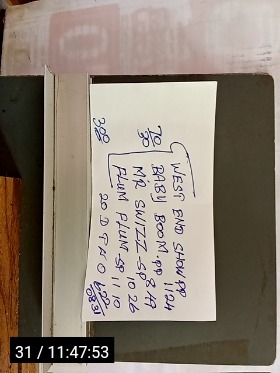 WEST END SHOW PP 1124
70/30 BABY BOOM - PP 8 A7
MR SWIZZ - SP 10 26
300 PLUM PLUM - SP 11 10
20 D T H O
31 / 11:47:53